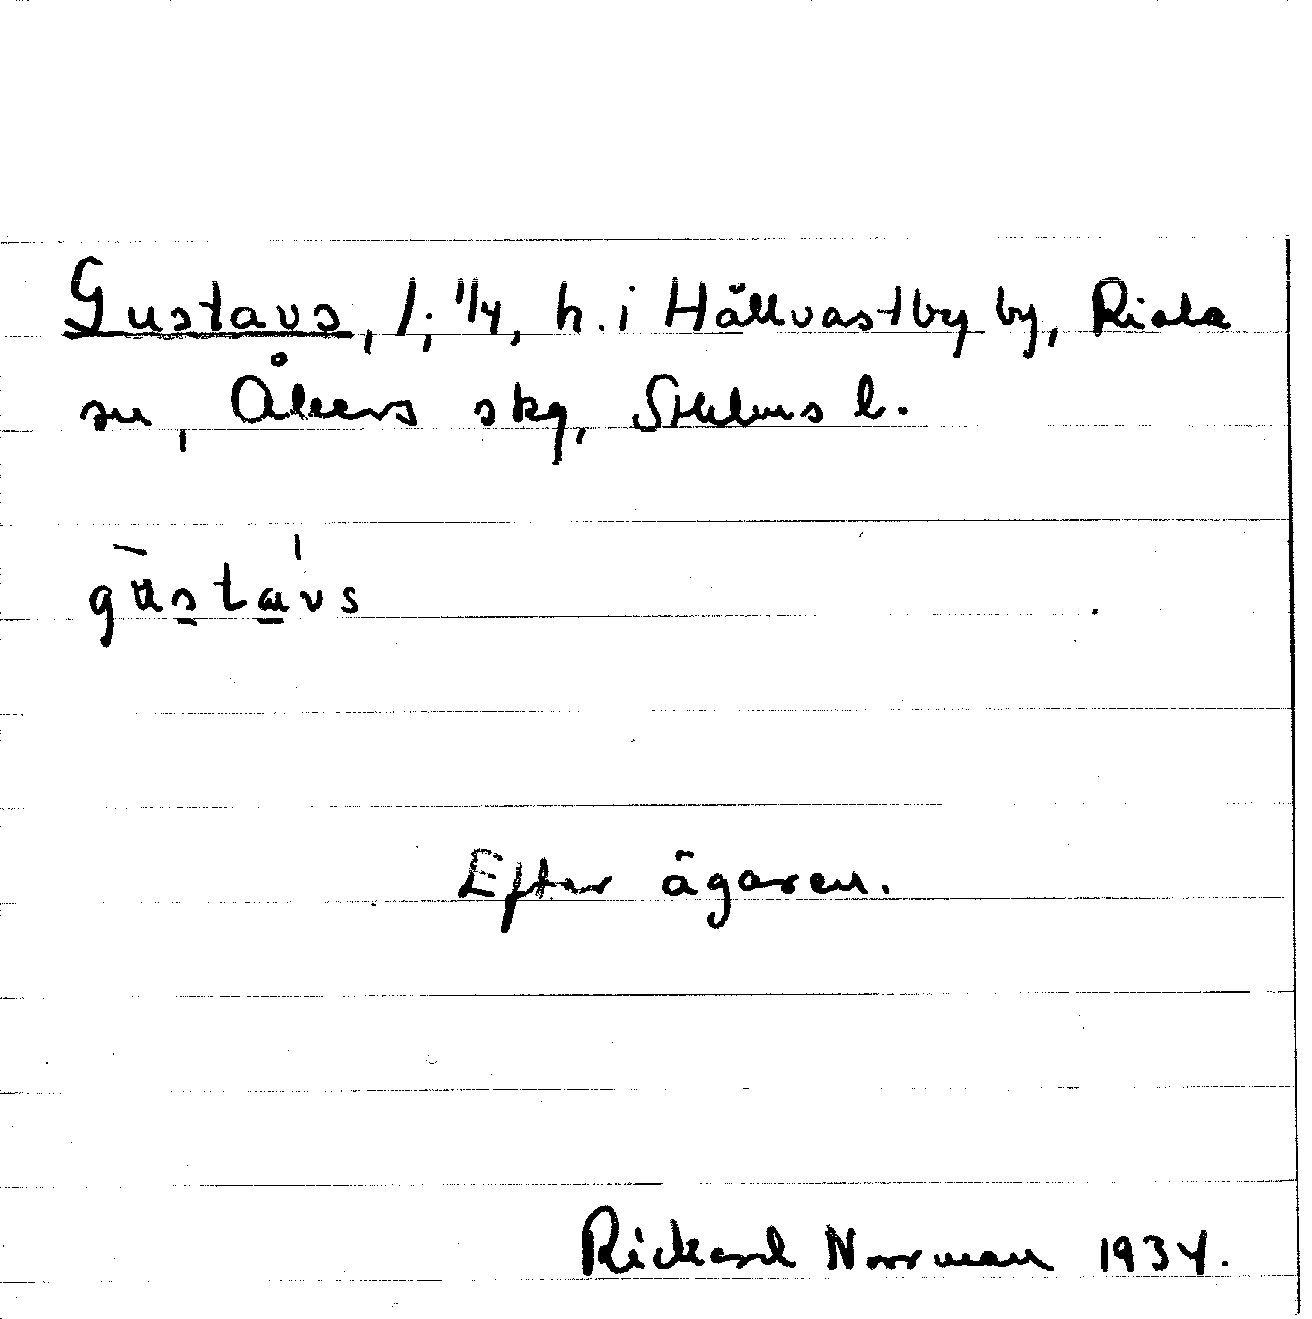 Gustavs, 1; 1/4, h. i Hällvastby by, Riala
sn, Åkers skg, Sthlms l.
gustavs
Efter ägaren.
Rickard Norrman 1934.